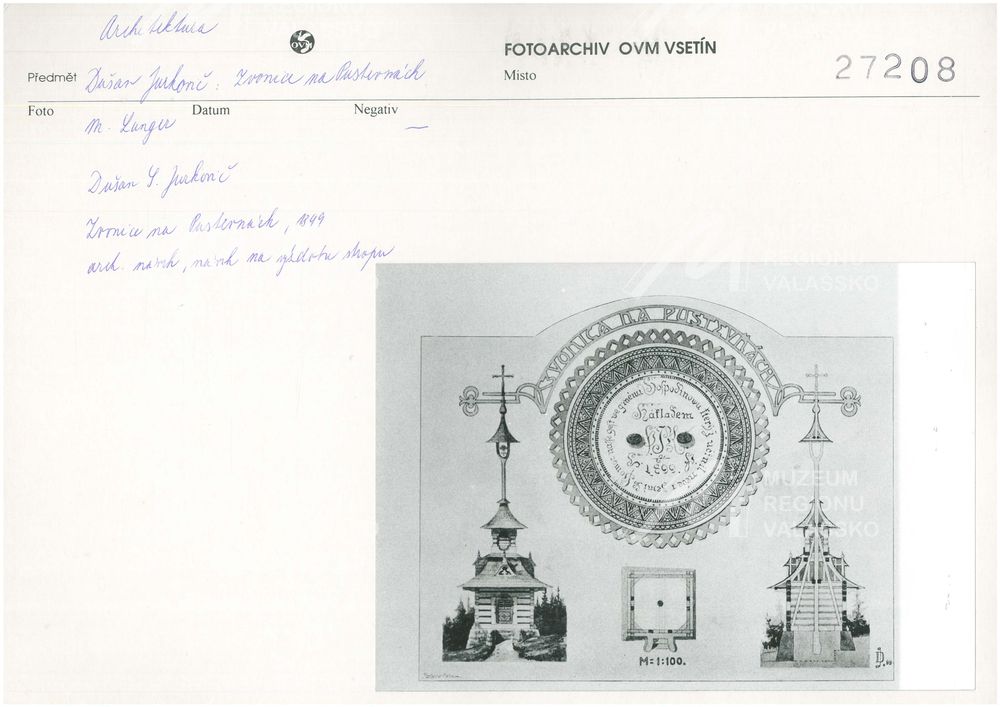 Architektura
OVM
FOTOARCHIV OVM VSETÍN
27208
Předmět Dušan Jurkovič: Zvonice na Pustevnách
Místo
Foto Datum Negativ
M. Langer —
Dušan S. Jurkovič
Zvonice na Pustevnách, 1899
arch. návrh, návrh na
REGIONU
VALAŠSKO
ZVONICA NA PUSTEVŇÁCH
Nákladem
MUZEUM
REGIONU
VALAŠSKO
M=1:100.